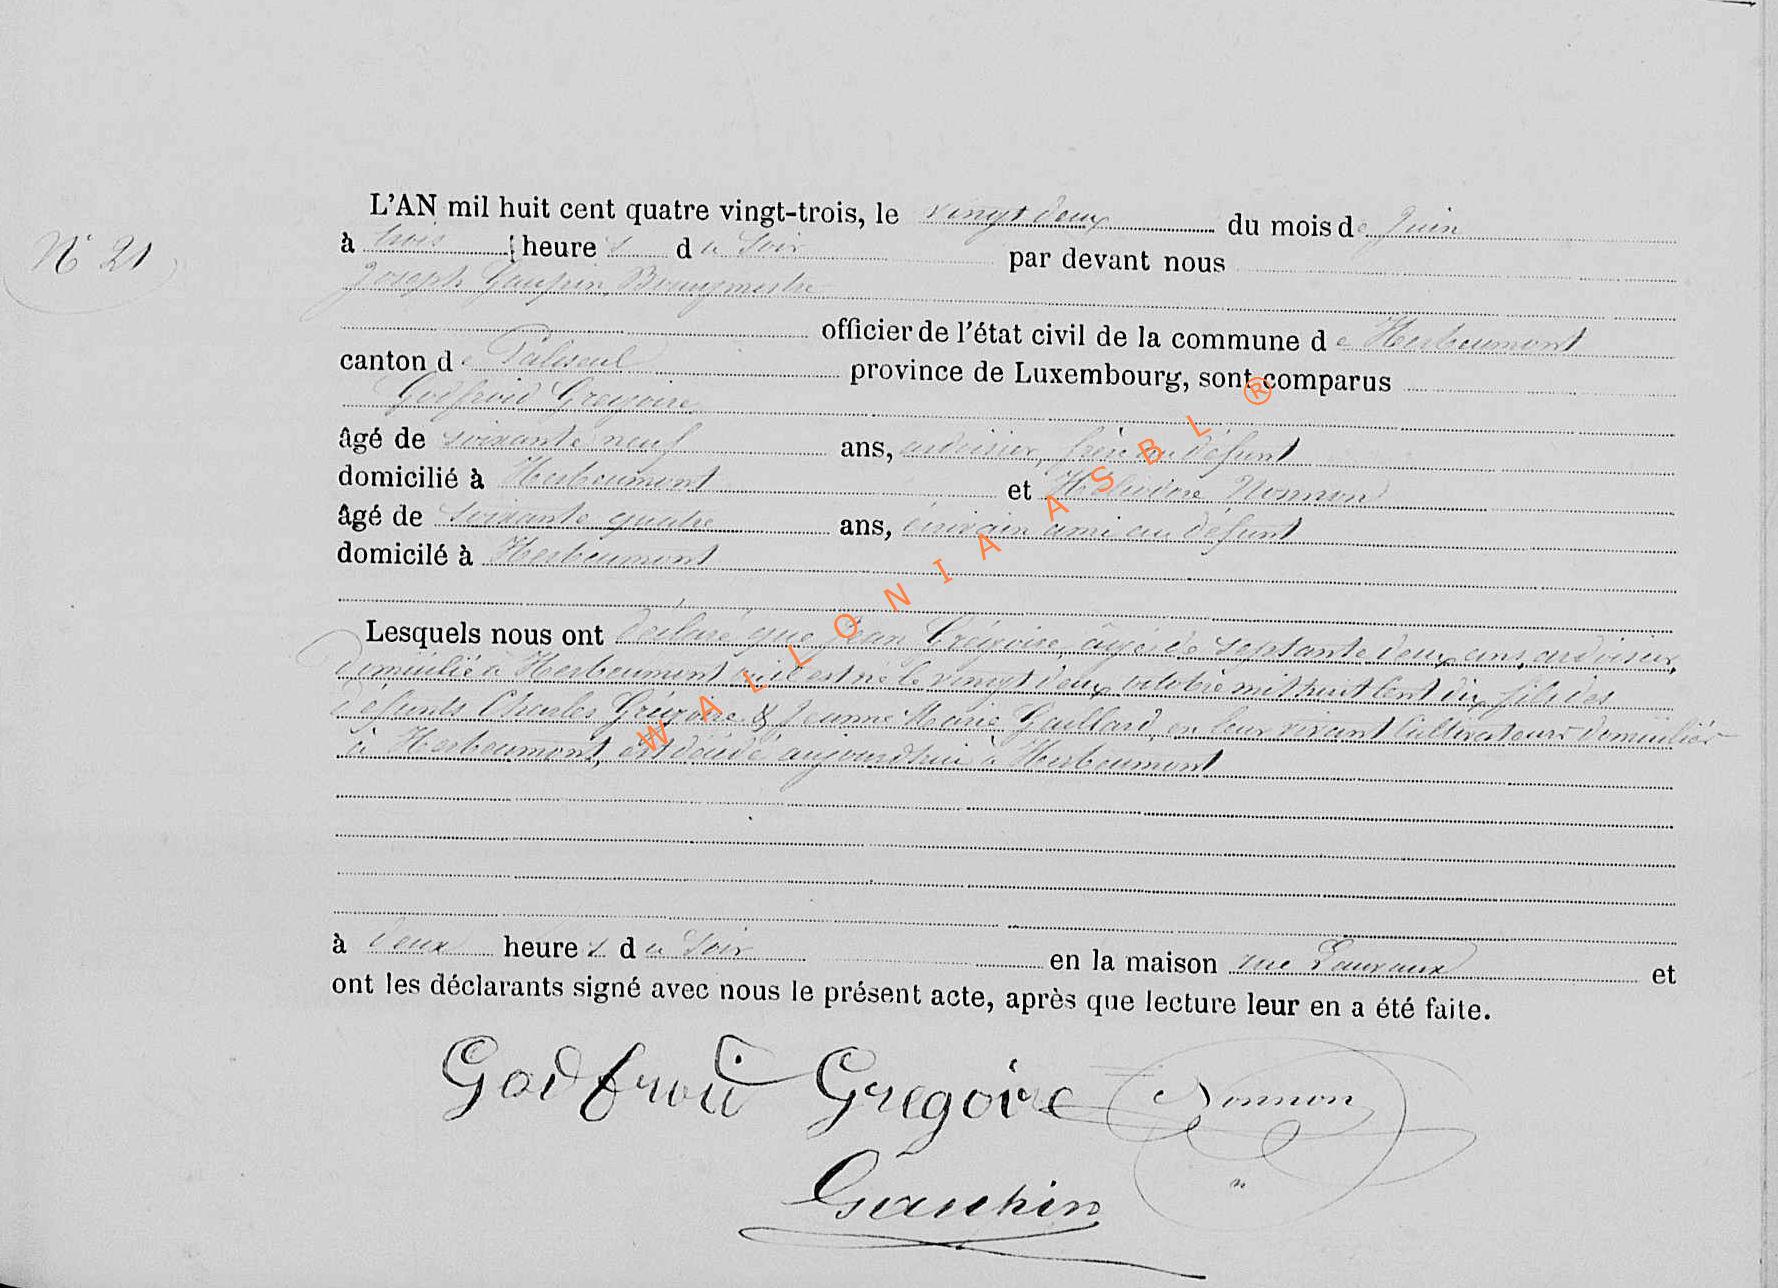 L'AN mil huit cent quatre vingt-trois, le vingt deux du mois de Juin
N° 21
à trois heures du soir par devant nous
Joseph Gaupin, Bourgmestre
officier de l'état civil de la commune de Herbeumont
canton de Paliseul province de Luxembourg, sont comparus
Godfroid Gregoire
âgé de soixante neuf ans, ardoisier, frère au défunt
domicilié à Herbeumont et Héliodore Nonnon
âgé de soixante quatre ans, écrivain ami au défunt
domicilé à Herbeumont
Lesquels nous ont déclaré que Jean Grégoire, âgé de septante deux ans, ardoisier,
domicilié à Herbeumont où il est né le vingt deux octobre mil huit cent dix, fils des
défunts Charles Grégoire & Jeanne Marie Gaillard, en leur vivant cultivateurs domiciliés
à Herbeumont, est décédé aujourdhui à Herbeumont
à deux heures du soir en la maison rue Lauvaux et
ont les déclarants signé avec nous le présent acte, après que lecture leur en a été faite.
Godfroid Gregoire Nonnon
WALLONIA ASBL ®